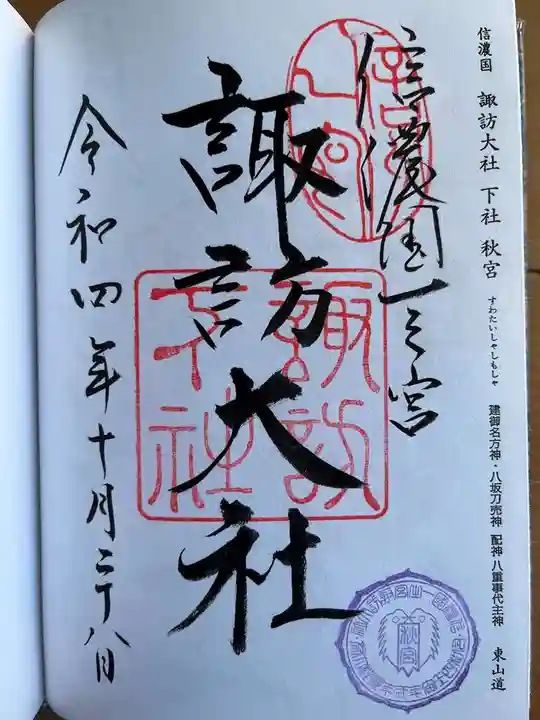 信濃国 諏訪大社 下社 秋宮 すわたいしゃしもしゃ 建御名方神・八坂刀売神 配神 八重事代主神 東山道
信濃国一之宮
諏訪大社
令和四年十月二十八日
諏訪
下社
秋宮